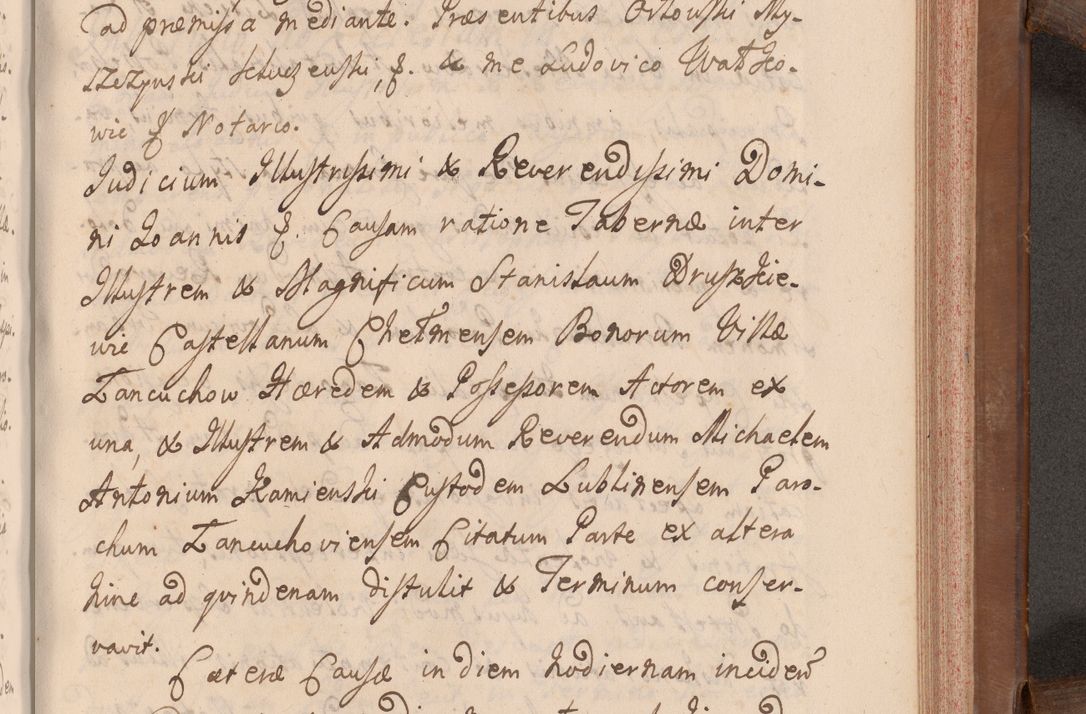 ad præmissa mediante. Præsentibus Orłowski My-
szczynski Kluczenski, &. & me Ludovico Wat Ko-
wic & Notario.
Judicium Illustrissimi & Reverendissimi Domi-
ni Joannis &. Causam ratione Tabernæ inter
Illustrem & Magnificum Stanislaum Druszkie-
wic Castellanum Chełmensem Bonorum Villæ
Łancuchow Hæredem & Possessorem Actorem ex
una, & Illustrem & Admodum Reverendum Michaelem
Antonium Kamienski Custodem Lublinensem Paro-
chum Łancuchoviensem Citatum Parte ex altera
hinc ad quindenam distulit & Terminum conser-
vavit.
Cæteræ Causæ in diem hodiernam inciden̄